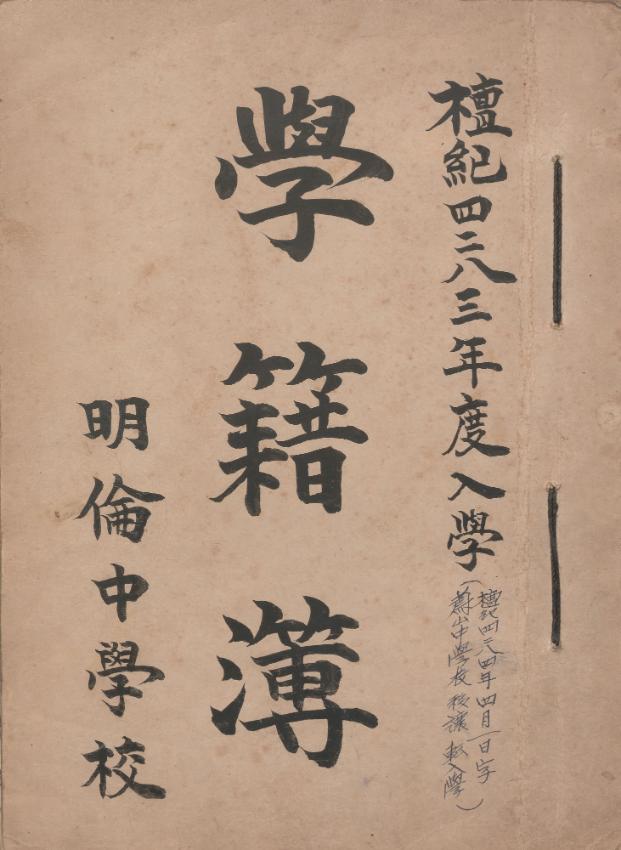 檀紀四二八三年度入學
(檀紀四二八四年四月一日字
蔚山中學校 讓 転入學)
學籍簿
明倫中學校